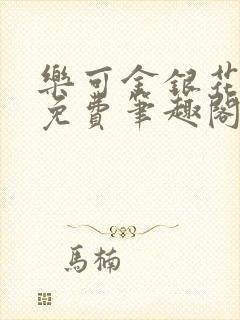 樂可金銀花
免費筆趣閣
馬楠